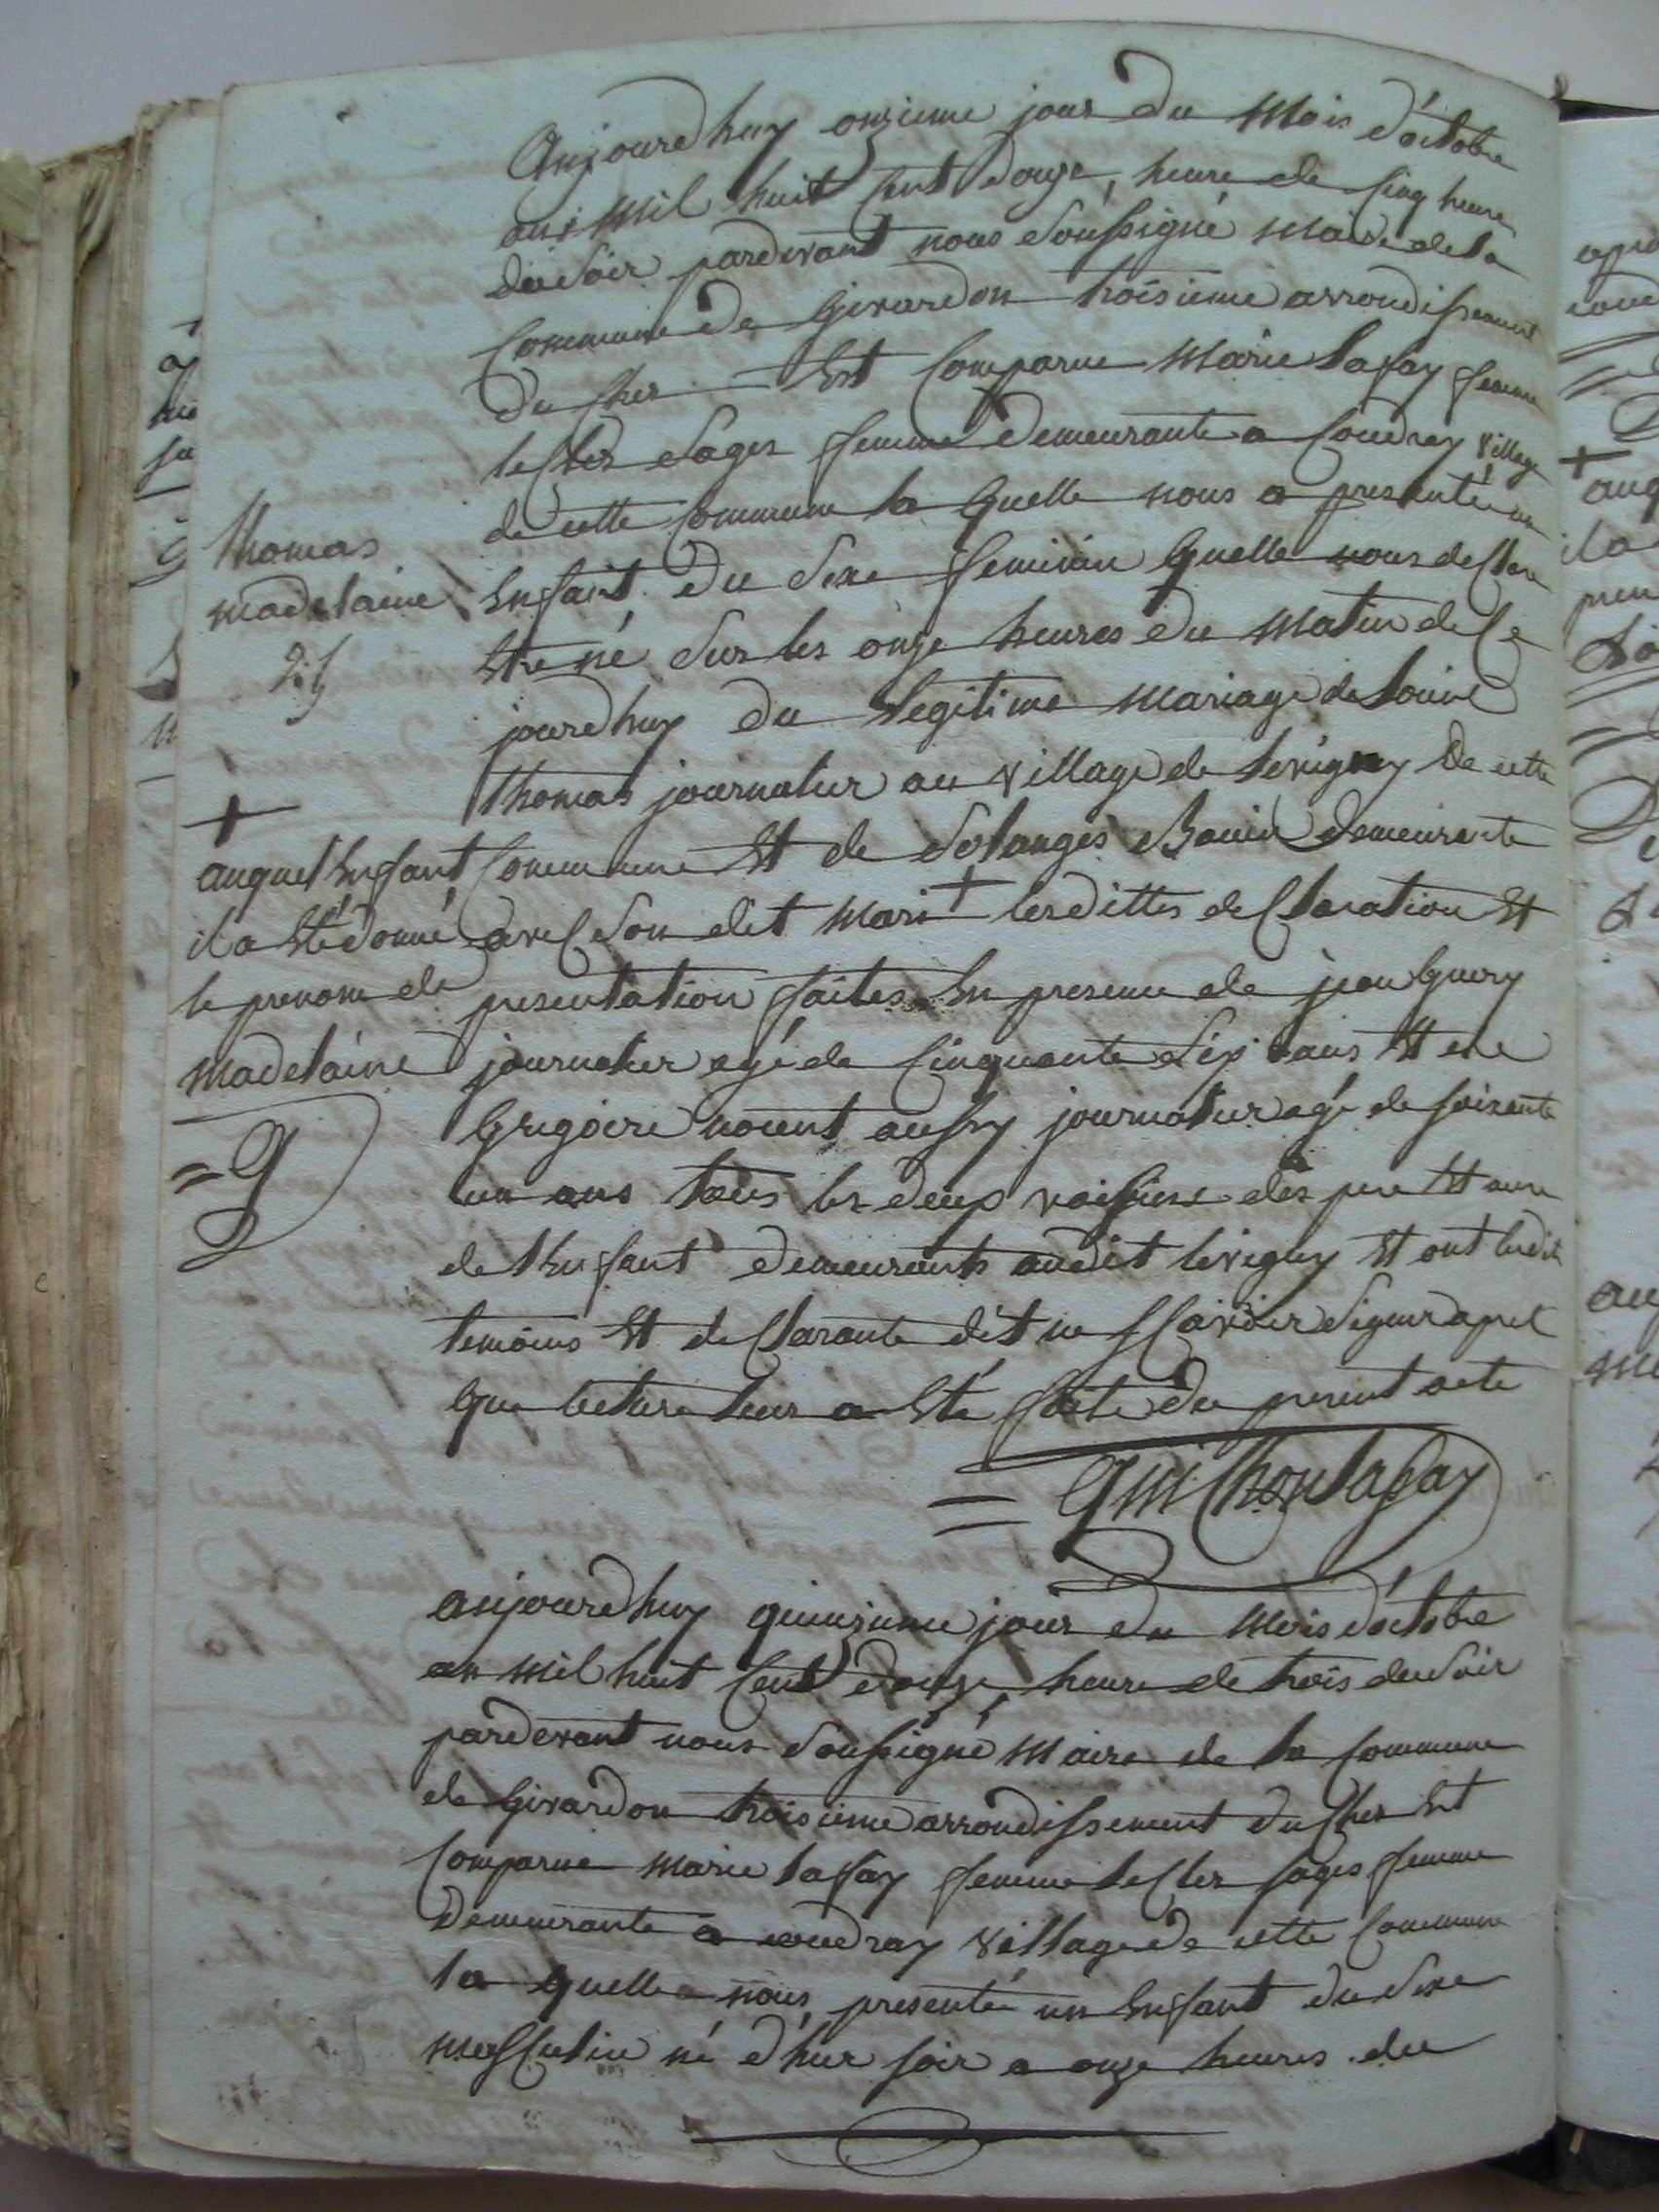 Aujourdhuy onzieme jour du Mois d'octobre
ans Mil huit Cent douze, heure de Cinq heure
du Soir pardevant nous Soussigné Maire de la
Commune de Givardon troisieme arrondissement
du Cher Est Comparue Marie lafay femme
leCler Sages femme demeurante a Coudray village
de cette Commune la quelle nous a presenté un
Enfant du Sexe feminin quelle nous deClare
Etre né Sur les onze heures du Matin de Ce
jourdhuy du legitime Mariage de Louis
thomas journalier au village de levigny de cette
Commune Et de Solanges Bouin demeurante
aveC Son dit Mari + lesdittes deClaration Et
presentation faites En presence de jean Guery
journalier agé de Cinquante Six ans Et de
Grégoire aussy journalier agé de soixante
un ans tous les deux voisins des pere Et mere
de l'Enfant demeurants audit levigny Et ont lesdits
temoins Et deClarante dit ne sCavoir Signer apres
que lecture leur a Eté faite du present acte
Guichon lafay
thomas
madelaine
+
auquel Enfant
il a Eté donné
le prenom de
Madelaine
= G
aujourdhuy quinzieme jour du Mois d'octobre
an Mil huit Cent douze, heure de trois du Soir
pardevant nous Soussigné Maire de la Commune
de Givardon troisieme arrondissement du Cher Est
Comparue Marie lafay femme leCler sages femme
demeurante a coudray village de cette Commune
la quelle nous presenté un Enfant du Sexe
masCulin né d'hier soir a onze heures du